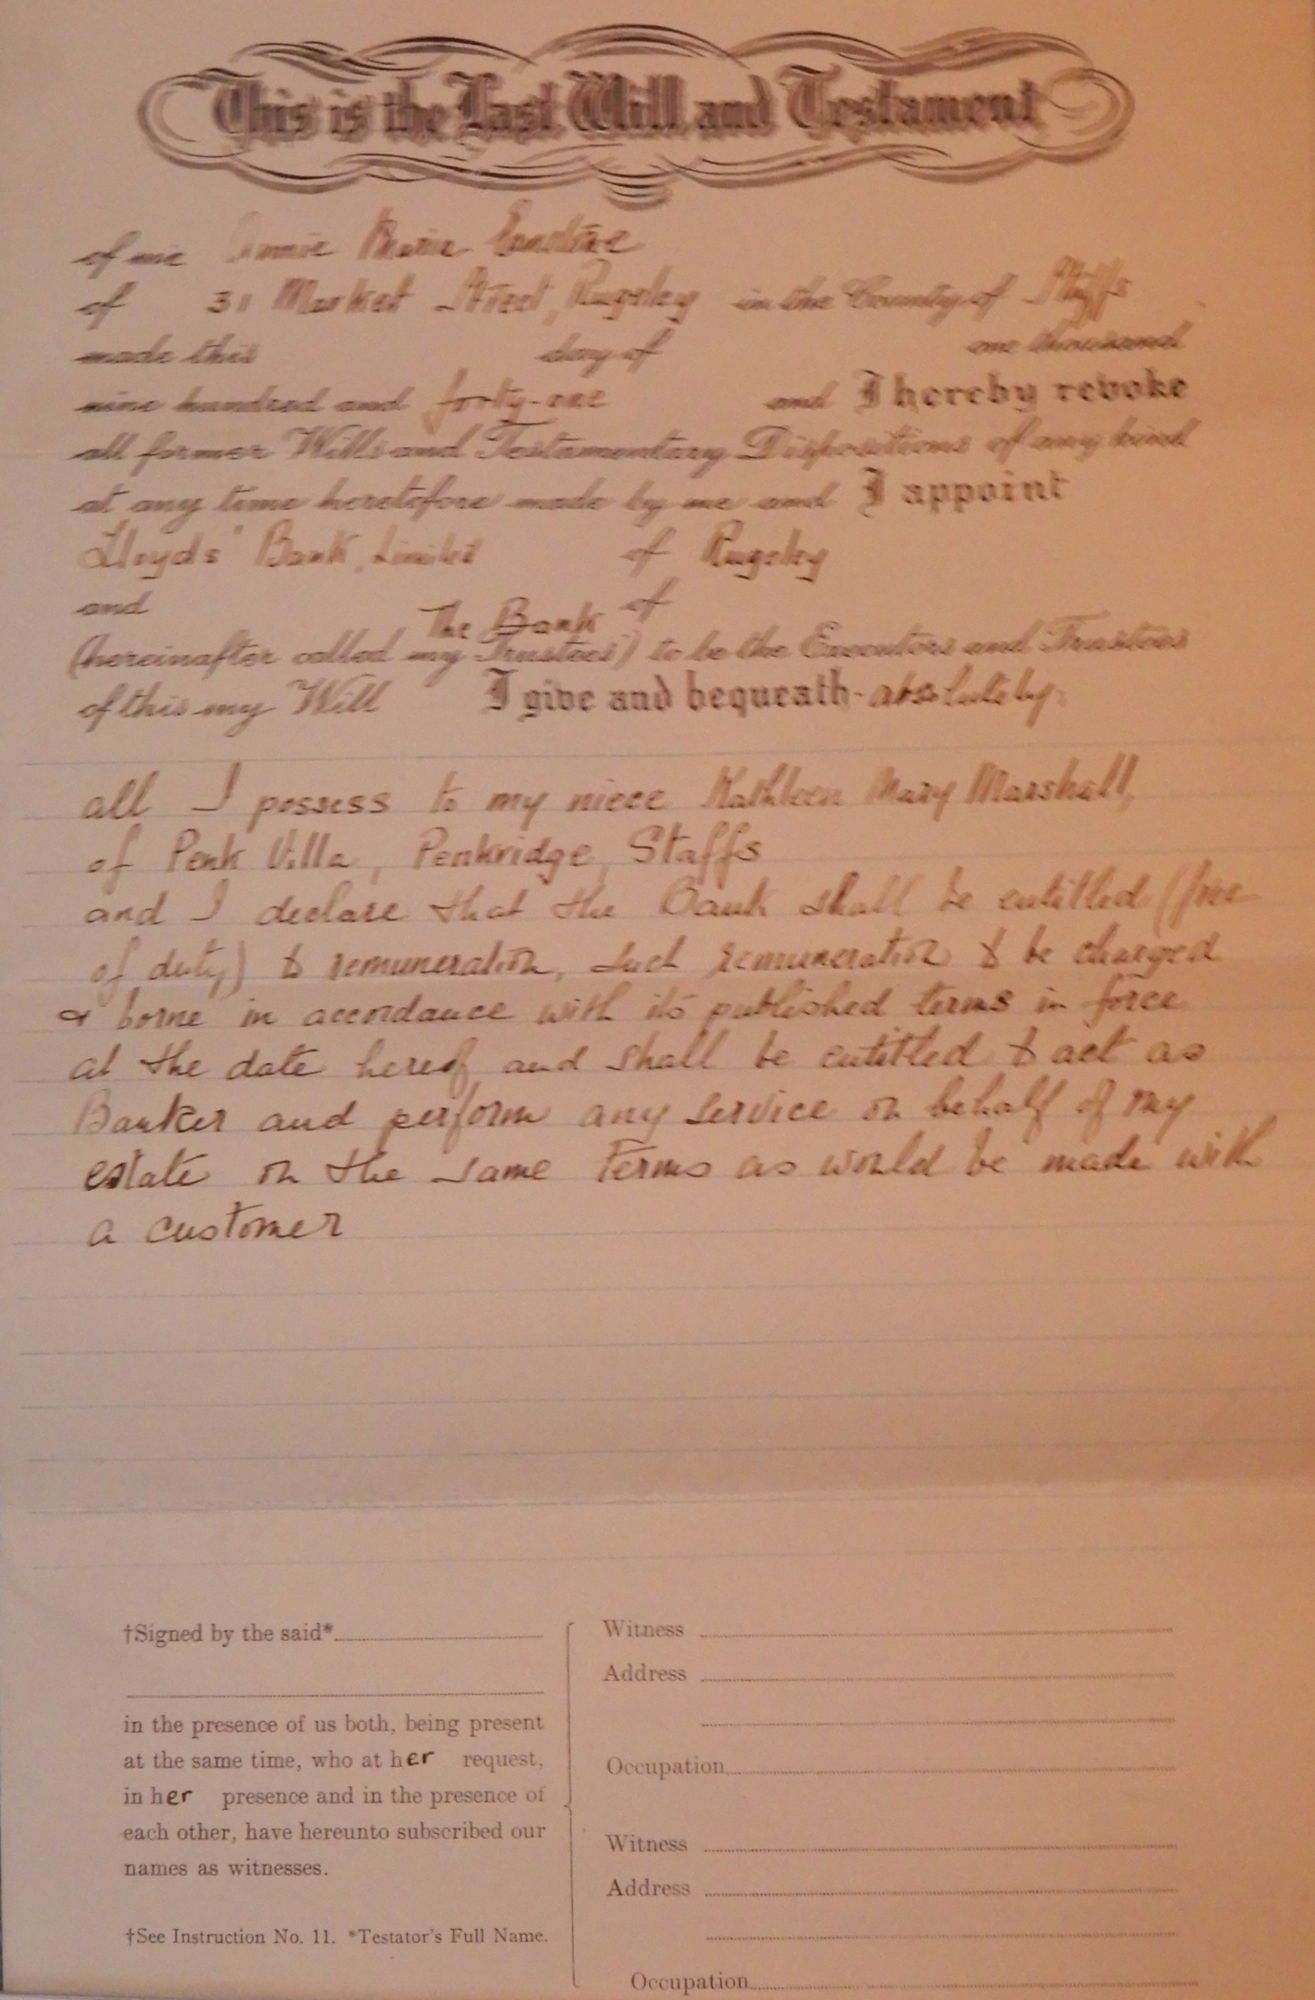 This is the Last Will and Testament
of me Annie Marie
of 31 Market Street, Rugeley in the County of Staffs
made this day of one thousand
nine hundred and forty-one and I hereby revoke
all former Wills and Testamentary Dispositions of any kind
at any time heretofore made by me and I appoint
Lloyds' Bank, Limited of Rugeley
and of
The Bank
(hereinafter called my Trustees) to be the Executors and Trustees
of this my Will I give and bequeath - absolutely:
all I possess to my niece Kathleen Mary Marshall,
of Penk Villa, Penkridge, Staffs
and I declare that the Bank shall be entitled (free
of duty) to remuneration, such remuneration to be charged
& borne in accordance with its published terms in force
at the date hereof and shall be entitled to act as
Banker and perform any service on behalf of my
estate on the same terms as would be made with
a customer
†Signed by the said*
in the presence of us both, being present
at the same time, who at her request,
in her presence and in the presence of
each other, have hereunto subscribed our
names as witnesses.
†See Instruction No. 11. *Testator's Full Name.
Witness
Address
Occupation
Witness
Address
Occupation